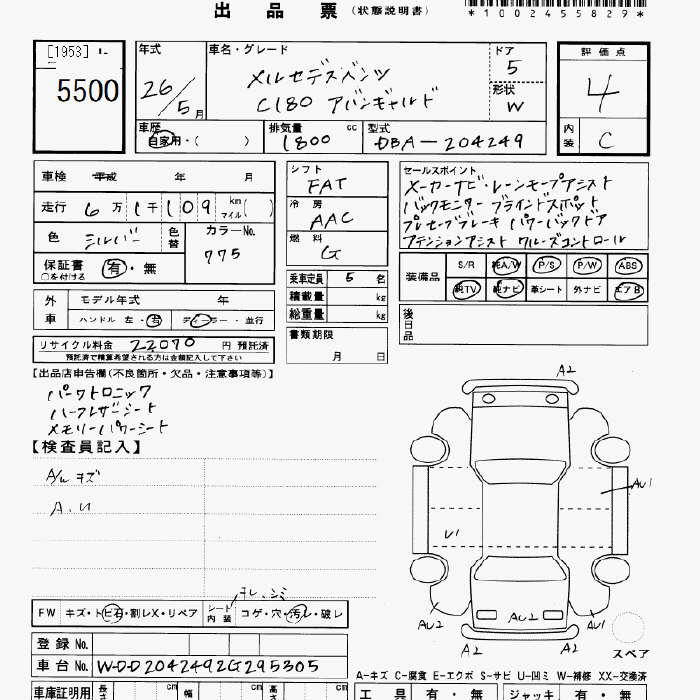 出品票 (状態説明書)
*1002455829*
[1953]
5500
年式
26/5月
車名・グレード
メルセデスベンツ
C180 アバンギャルド
ドア
5
形状
W
評価点
4
内装
C
車歴
自家用・( )
排気量
1800 cc
型式
DBA-204249
車検 平成 年 月
走行 6万1千109 km マイル( )
色
シルバー
色替
カラーNo.
775
保証書 有・無
○を付ける
外車
モデル年式 年
ハンドル 左・右
ディーラー・並行
リサイクル料金 22070 円 預託済
預託済で精算希望される方は金額記入して下さい
シフト
FAT
冷房
AAC
燃料
G
乗車定員 5 名
積載量 kg
総重量 kg
書類期限
月 日
セールスポイント
メーカーナビ・レーンキープアシスト
バックモニター ブラインドスポット
プレセーブブレーキ パワーバックドア
アテンションアシスト クルーズコントロール
装備品
S/R 純A/W P/S P/W ABS
純TV 純ナビ 革シート 外ナビ エアB
後日品
【出品店申告欄(不良箇所・欠品・注意事項等)】
パークトロニック
ハーフレザーシート
メモリーパワーシート
【検査員記入】
A/w キズ
A.U
FW キズ・トビ石・割レX・リペア
シート内装 コゲ・穴・汚レ・破レ
スレ、シミ
登録No.
車台No. WDD2042492G295305
車庫証明用
長さ cm 幅 cm cm
A2
AU1
U1
AU2
AU2
AU1
A2
A2
スペア
A-キズ C-腐食 E-エクボ S-サビ U-凹ミ W-補修 XX-交換済
工具 有・無 ジャッキ 有・無